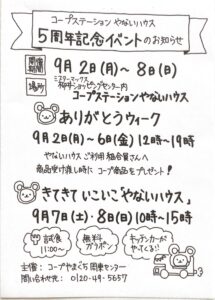 コープステーション やないハウス
5周年記念イベントのお知らせ
開催期間 9月2日(月)～8日(日)
場所 ミスターマックス 柳井ショッピングセンター内
コープステーションやないハウス
ありがとうウィーク
9月2日(月)～6日(金)12時～19時
やないハウス ご利用組合員さんへ
商品受け渡し時に コープ商品をプレゼント!
きてきて いこいこ「やないハウス」
9月7日(土)・8日(日)10時～15時
試食 11:00～
無料ガラポン
キッチンカーがやってくる!!
主催：コープやまぐち 周東センター
フリーダイヤル：0120-49-5657